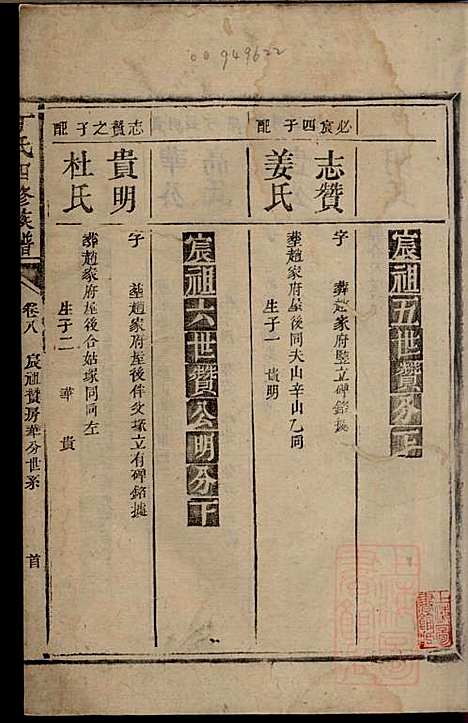 00949622
宸祖五世贊分上
必宸四子 配
志贊
姜氏
字 葬趙家府塋立碑銘據
葬趙家府屋後同夫山辛山乙向
生子一 貴明
宸祖六世贊公明分下
志贊之子 配
貴明
杜氏
字 葬趙家府屋後伴父塚立有碑銘據
葬趙家府屋後合姑塚同向左
生子二 華 貴
氏四修族譜
卷八 宸祖贊房華分世系
首